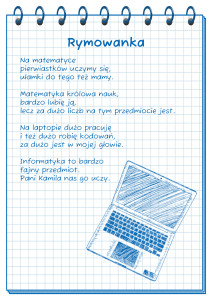 Rymowanka
Na matematyce
pierwiastków uczymy się,
ułamki do tego też mamy.
Matematyka królowa nauk,
bardzo lubię ją,
lecz za dużo liczb na tym przedmiocie jest.
Na laptopie dużo pracuję
i też dużo robię kodowań,
za dużo jest w mojej głowie.
Informatyka to bardzo
fajny przedmiot.
Pani Kamila nas go uczy.